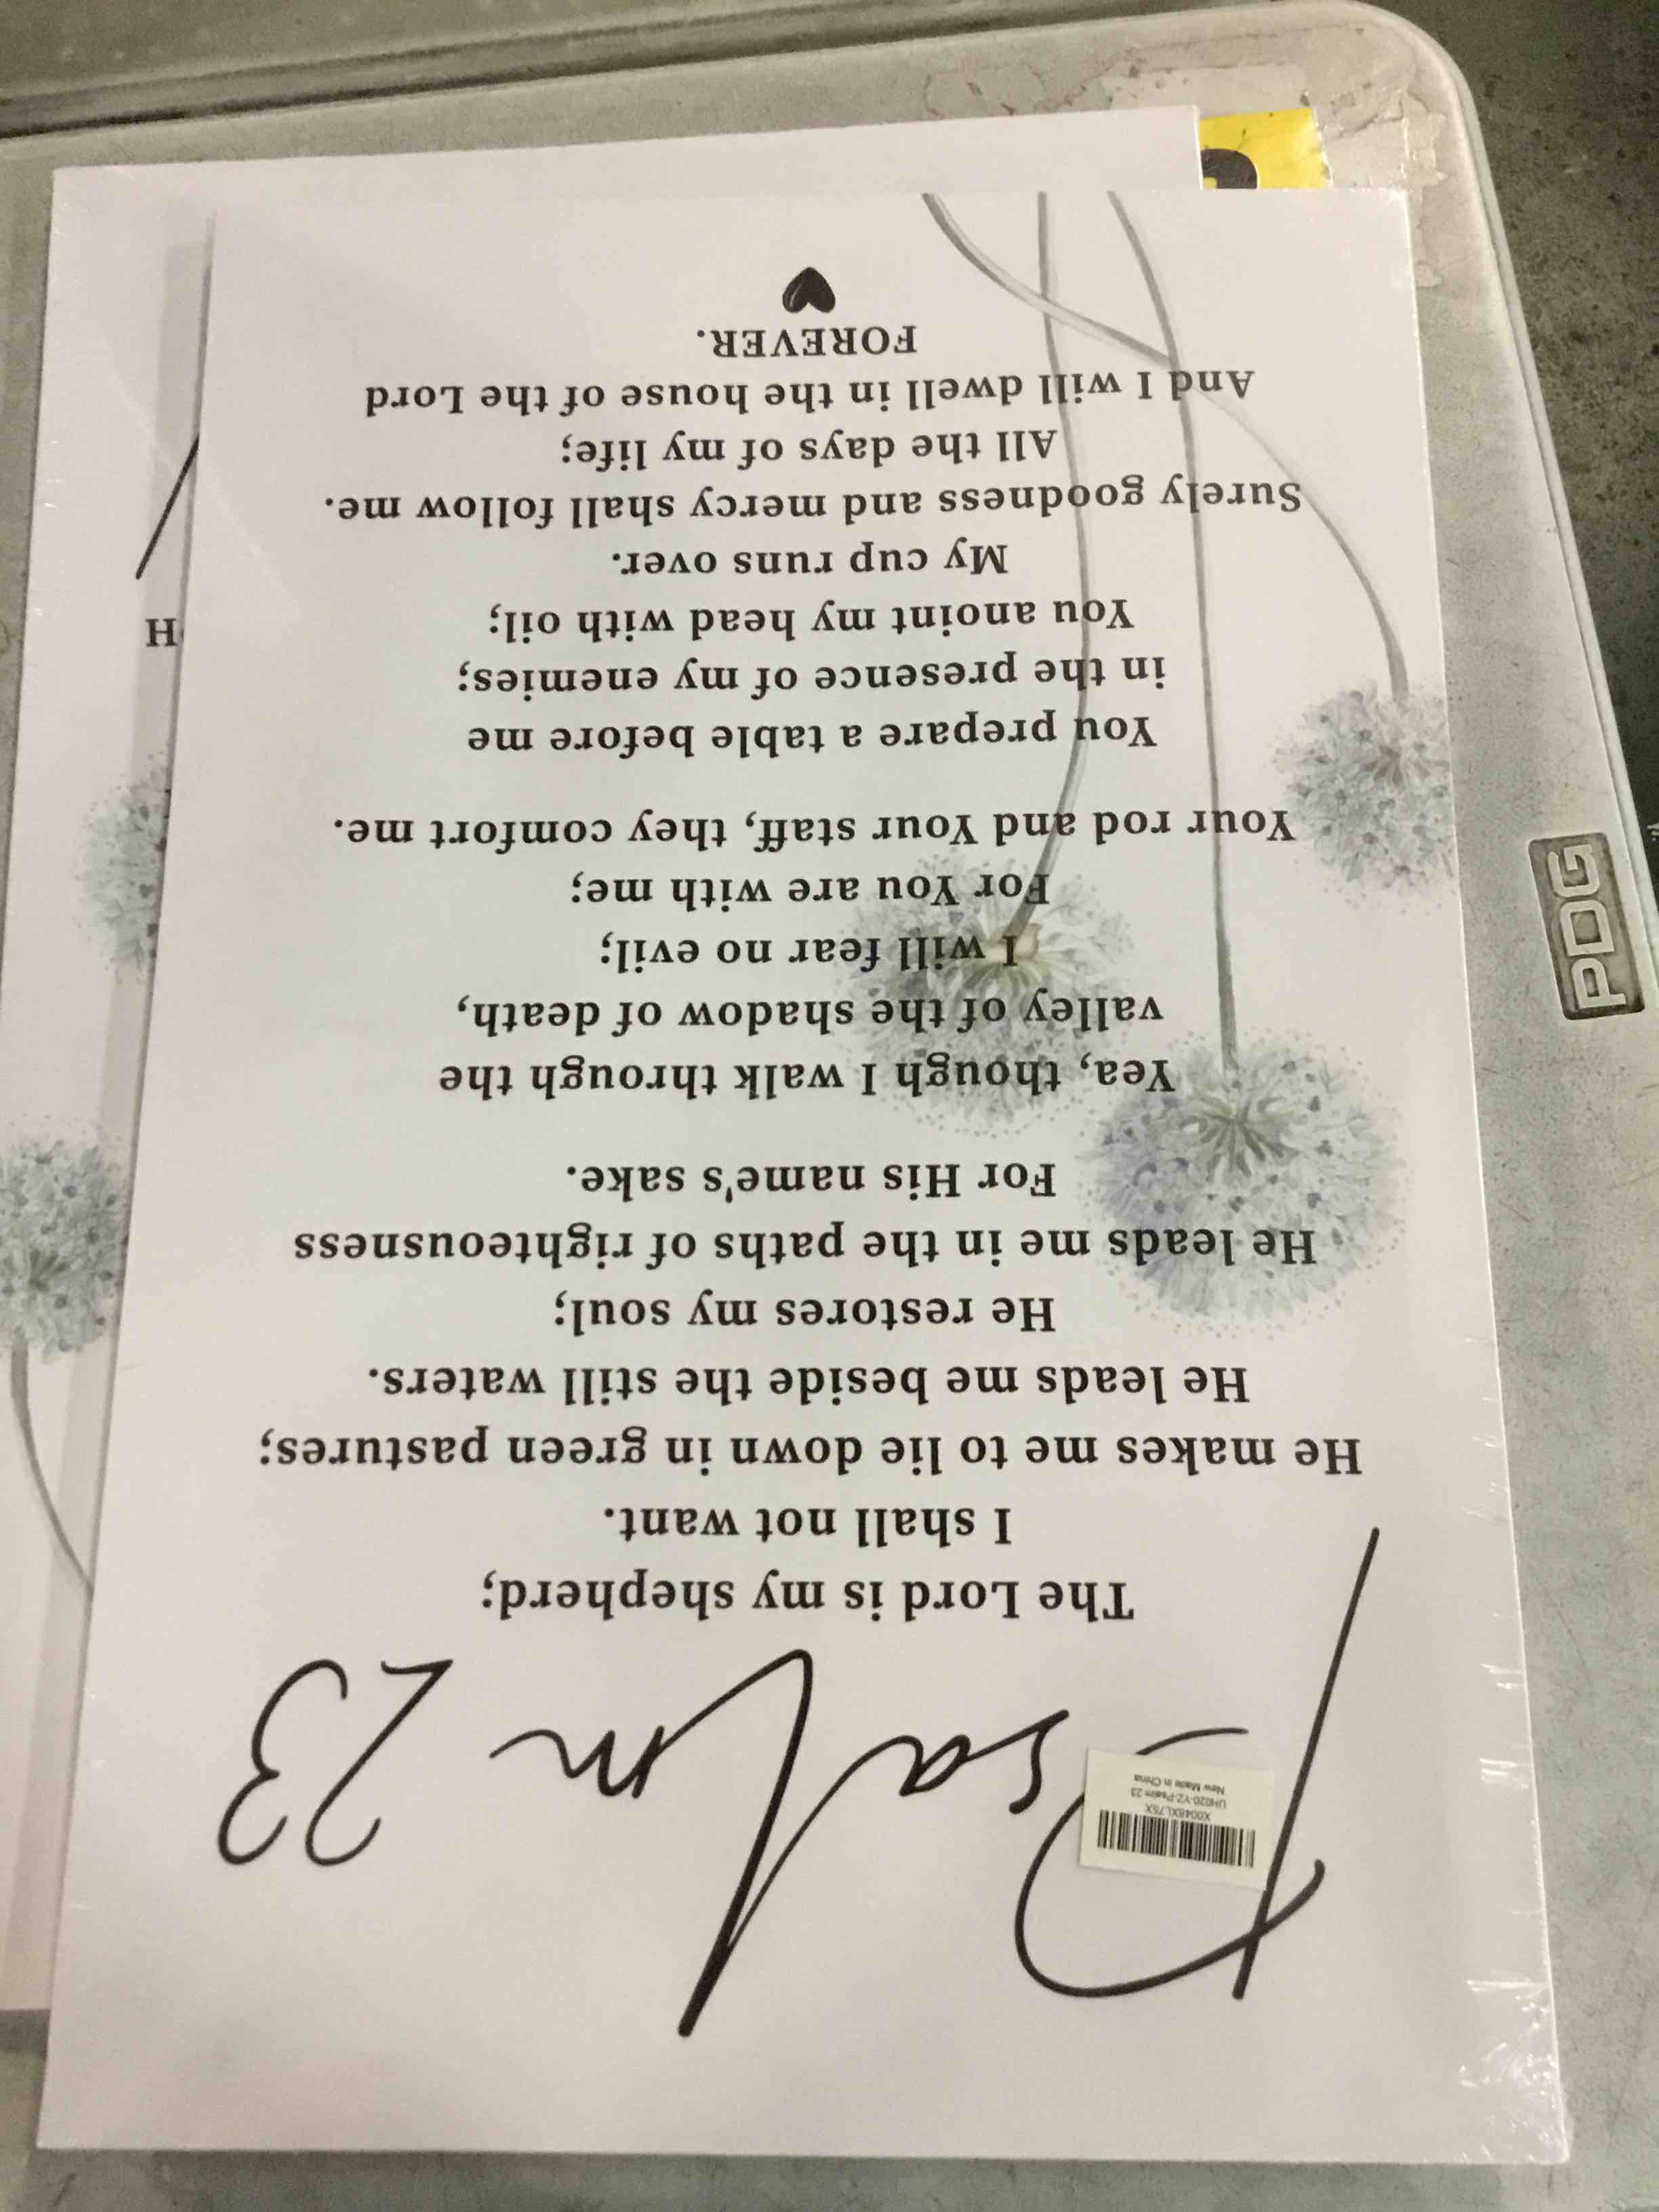 Psalm 23
The Lord is my shepherd;
I shall not want.
He makes me to lie down in green pastures;
He leads me beside the still waters.
He restores my soul;
He leads me in the paths of righteousness
For His name's sake.
Yea, though I walk through the
valley of the shadow of death,
I will fear no evil;
For You are with me;
Your rod and Your staff, they comfort me.
You prepare a table before me
in the presence of my enemies;
You anoint my head with oil;
My cup runs over.
Surely goodness and mercy shall follow me.
All the days of my life;
And I will dwell in the house of the Lord
FOREVER.
X0048XL75X
UH020-YZ-Psalm 23
New Made in China
H
PDG